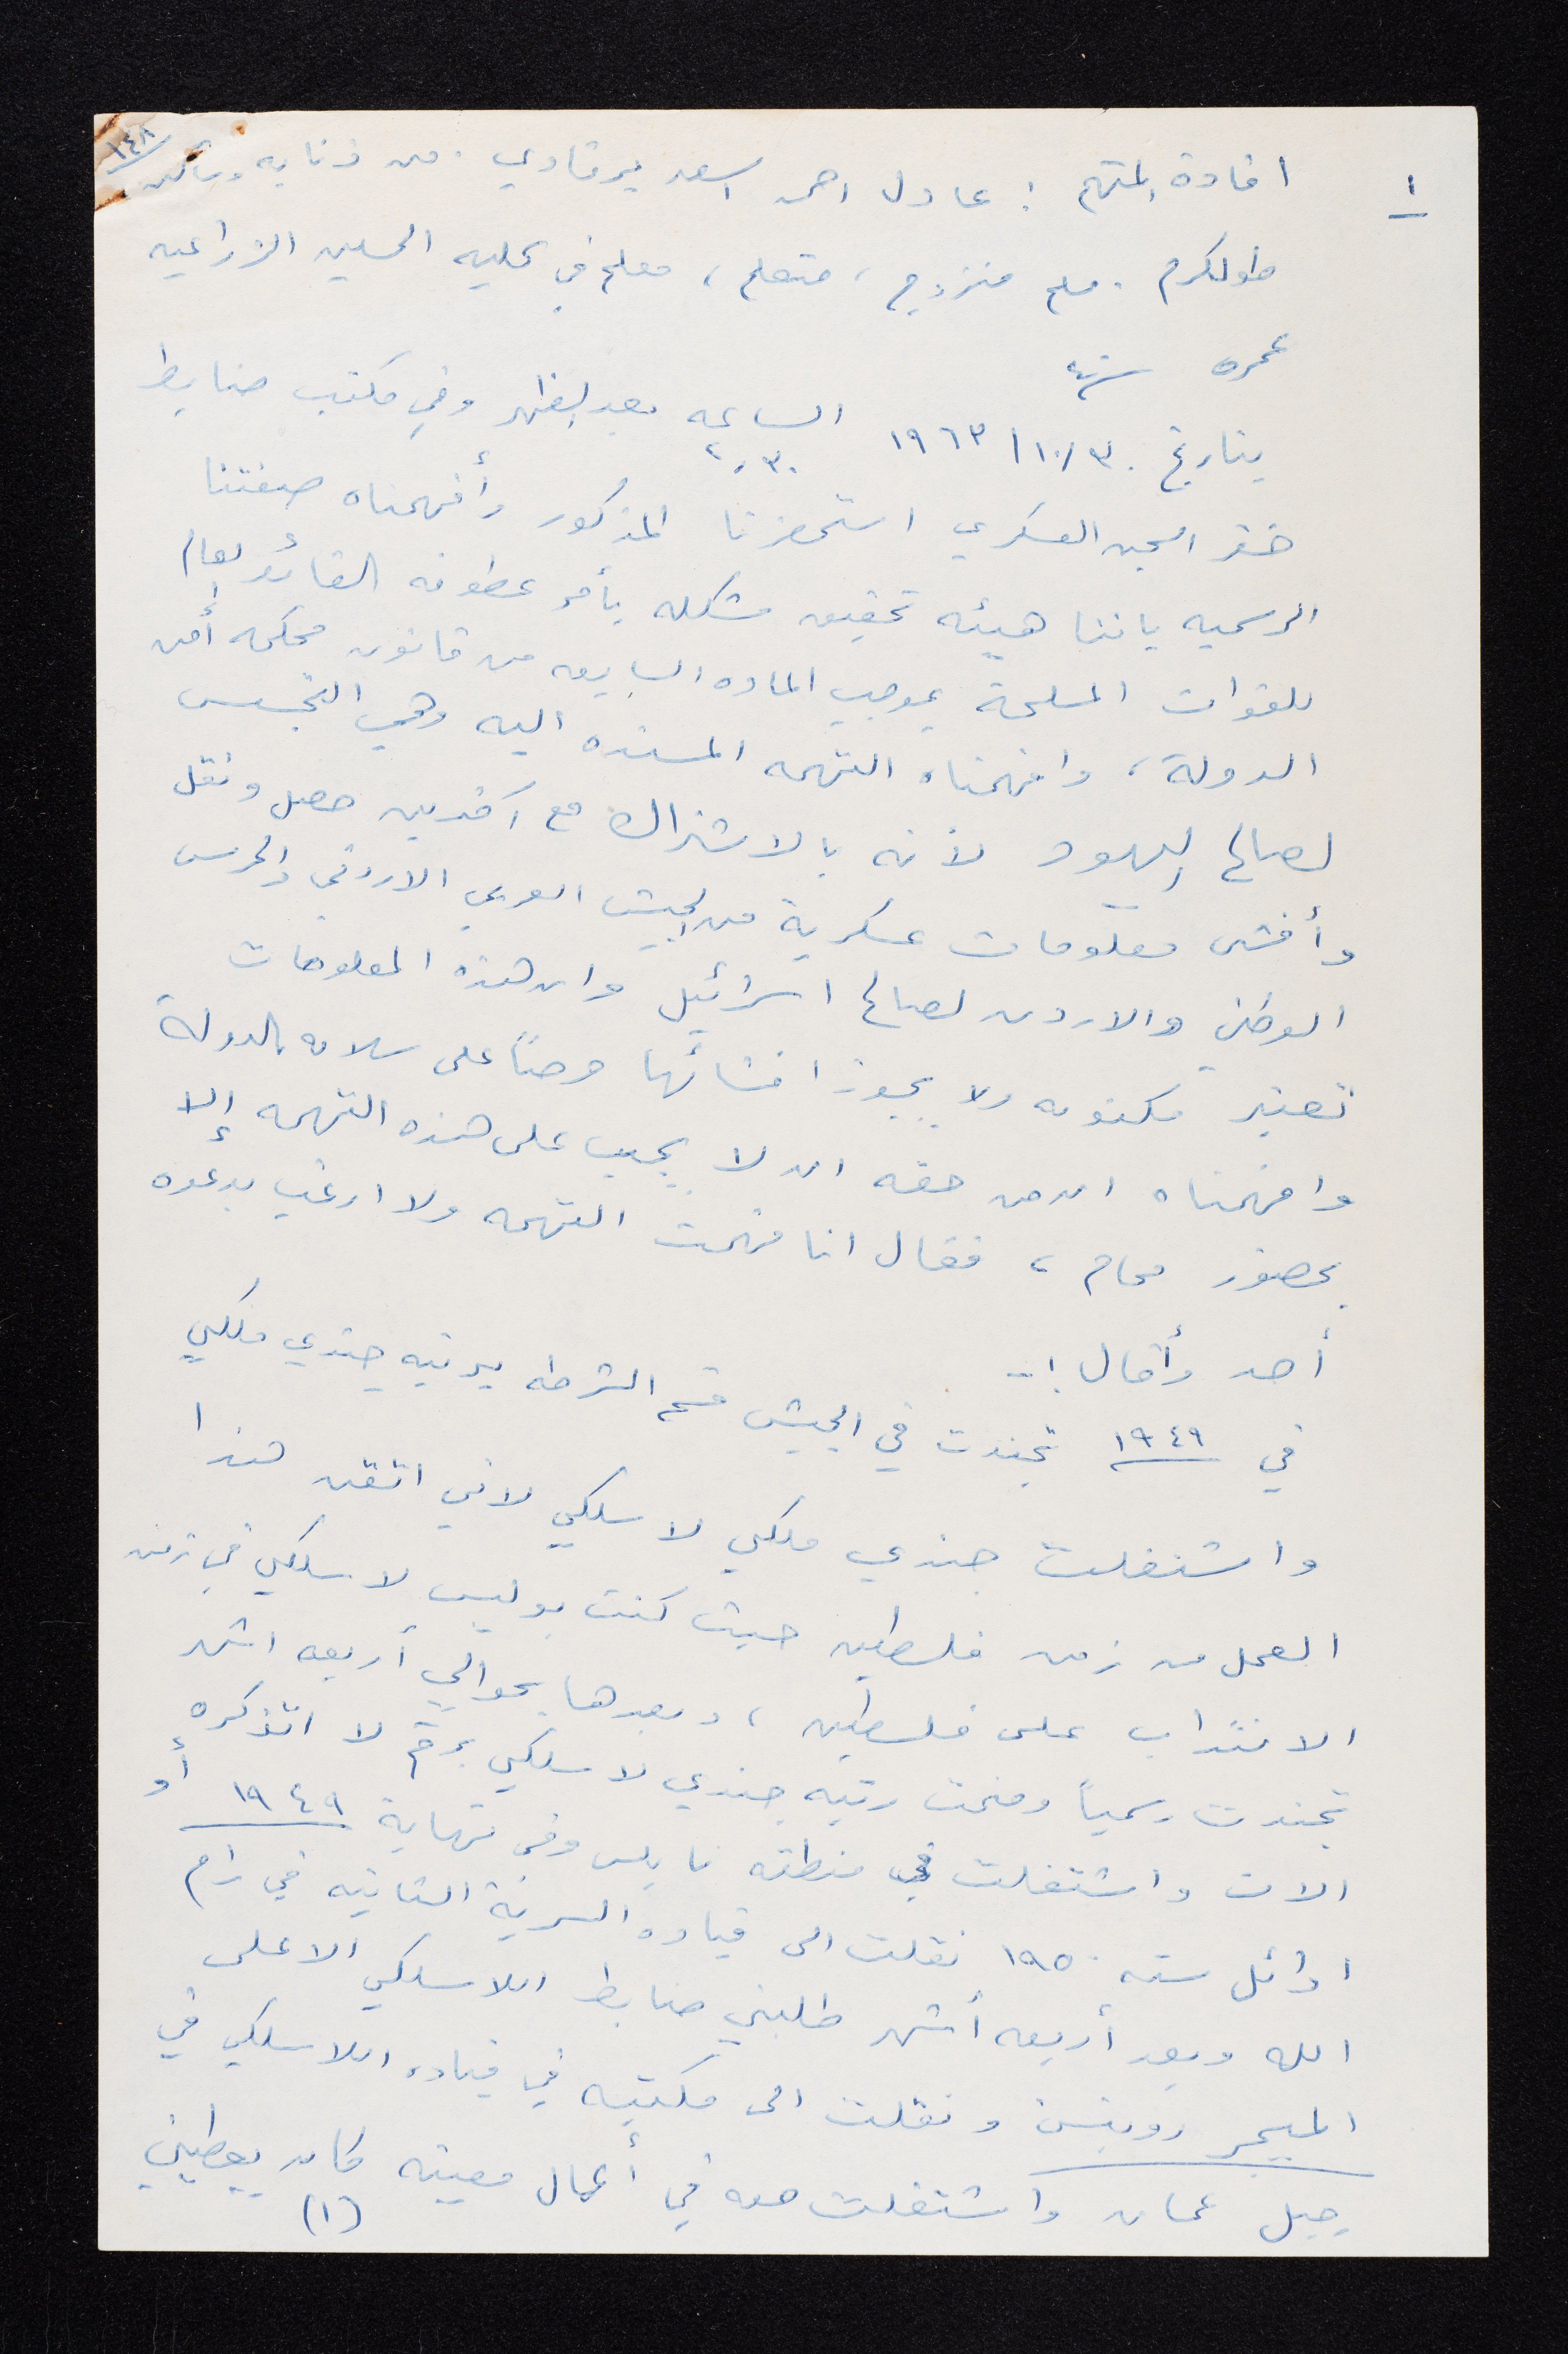 ١٤٨
١
افادة المتهم : عادل احمد اسعد برقاوي . من ذنابه وسكان
طولكرم . مسلم متزوج ، متعلم ، معلم في كليه الحسين الزراعيه
عمره ٤٠
بتاريخ ٣٠/١٠/١٩٦٣ الساعه ٢,٣٠ بعد الظهر وفي مكتب ضابط
خفر السجن العسكري استحضرنا المذكور وأفهمناه صفتنا
الرسميه باننا هيئه تحقيق مشكله بأمر عطوفه القائد العام
للقوات المسلحة بموجب الماده السابعه من قانون محكمه أمن
الدولة ، وافهمناه التهمه المسنده اليه وهي التجسس
لصالح اليهود لأنه بالاشتراك مع آخرين حصل ونقل
وأفشى معلومات عسكرية من الجيش العربي الاردني والحرس
الوطني والاردن لصالح اسرائيل وان هذه المعلومات
تعتبر مكتومه ولا يجوز افشائها حرصاً على سلامه الدولة
وافهمناه ان من حقه ان لا يجيب على هذه التهمه إلا
بحضور محام ، فقال انا فهمت التهمه ولا ارغب بدعوه
أحد وأقال :-
في ١٩٤٩ تجندت في الجيش قسم الشرطه برتبه جندي ملكي
واشتغلت جندي ملكي لاسلكي لاني اتقن هذا
العمل من زمن فلسطين حيث كنت بوليس لاسلكي في زمن
الانتداب على فلسطين ، وبعدها بحوالي أربعه اشهر
تجندت رسمياً ومنحت رتبه جندي لاسلكي برقم لا اتذكره
الان واشتغلت في منطقه نابلس وفي نهاية ١٩٤٩ أو
اوائل سنه ١٩٥٠ نقلت الى قياده السرية الثانيه في رام
الله وبعد أربعه أشهر طلبني ضابط اللاسلكي الاعلى
الميجر روبنسن ونقلت الى مكتبه في قياده اللاسلكي في
جبل عمان واشتغلت معه في أعمال معينه كان يعطيني
(١)